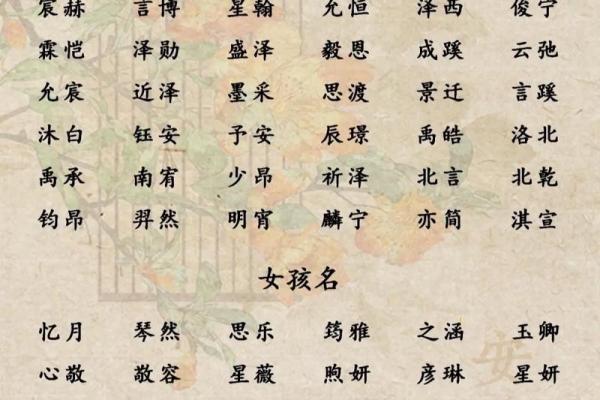 宸赫 言博 星翰 允恒 泽西 俊宁
霖恺 泽勋 盛泽 毅恩 成蹊 云弛
允宸 近泽 墨采 思渡 景迁 言蹊
沐白 钰安 予安 辰璟 禹皓 洛北
禹承 南宥 少昂 祈泽 北言 北乾
钧昂 羿然 明宵 麟宁 亦简 淇宣
女孩名
忆月 琴然 思乐 筠雅 之涵 玉卿
心敬 敬容 星薇 煦妍 彦琳 星妍
安